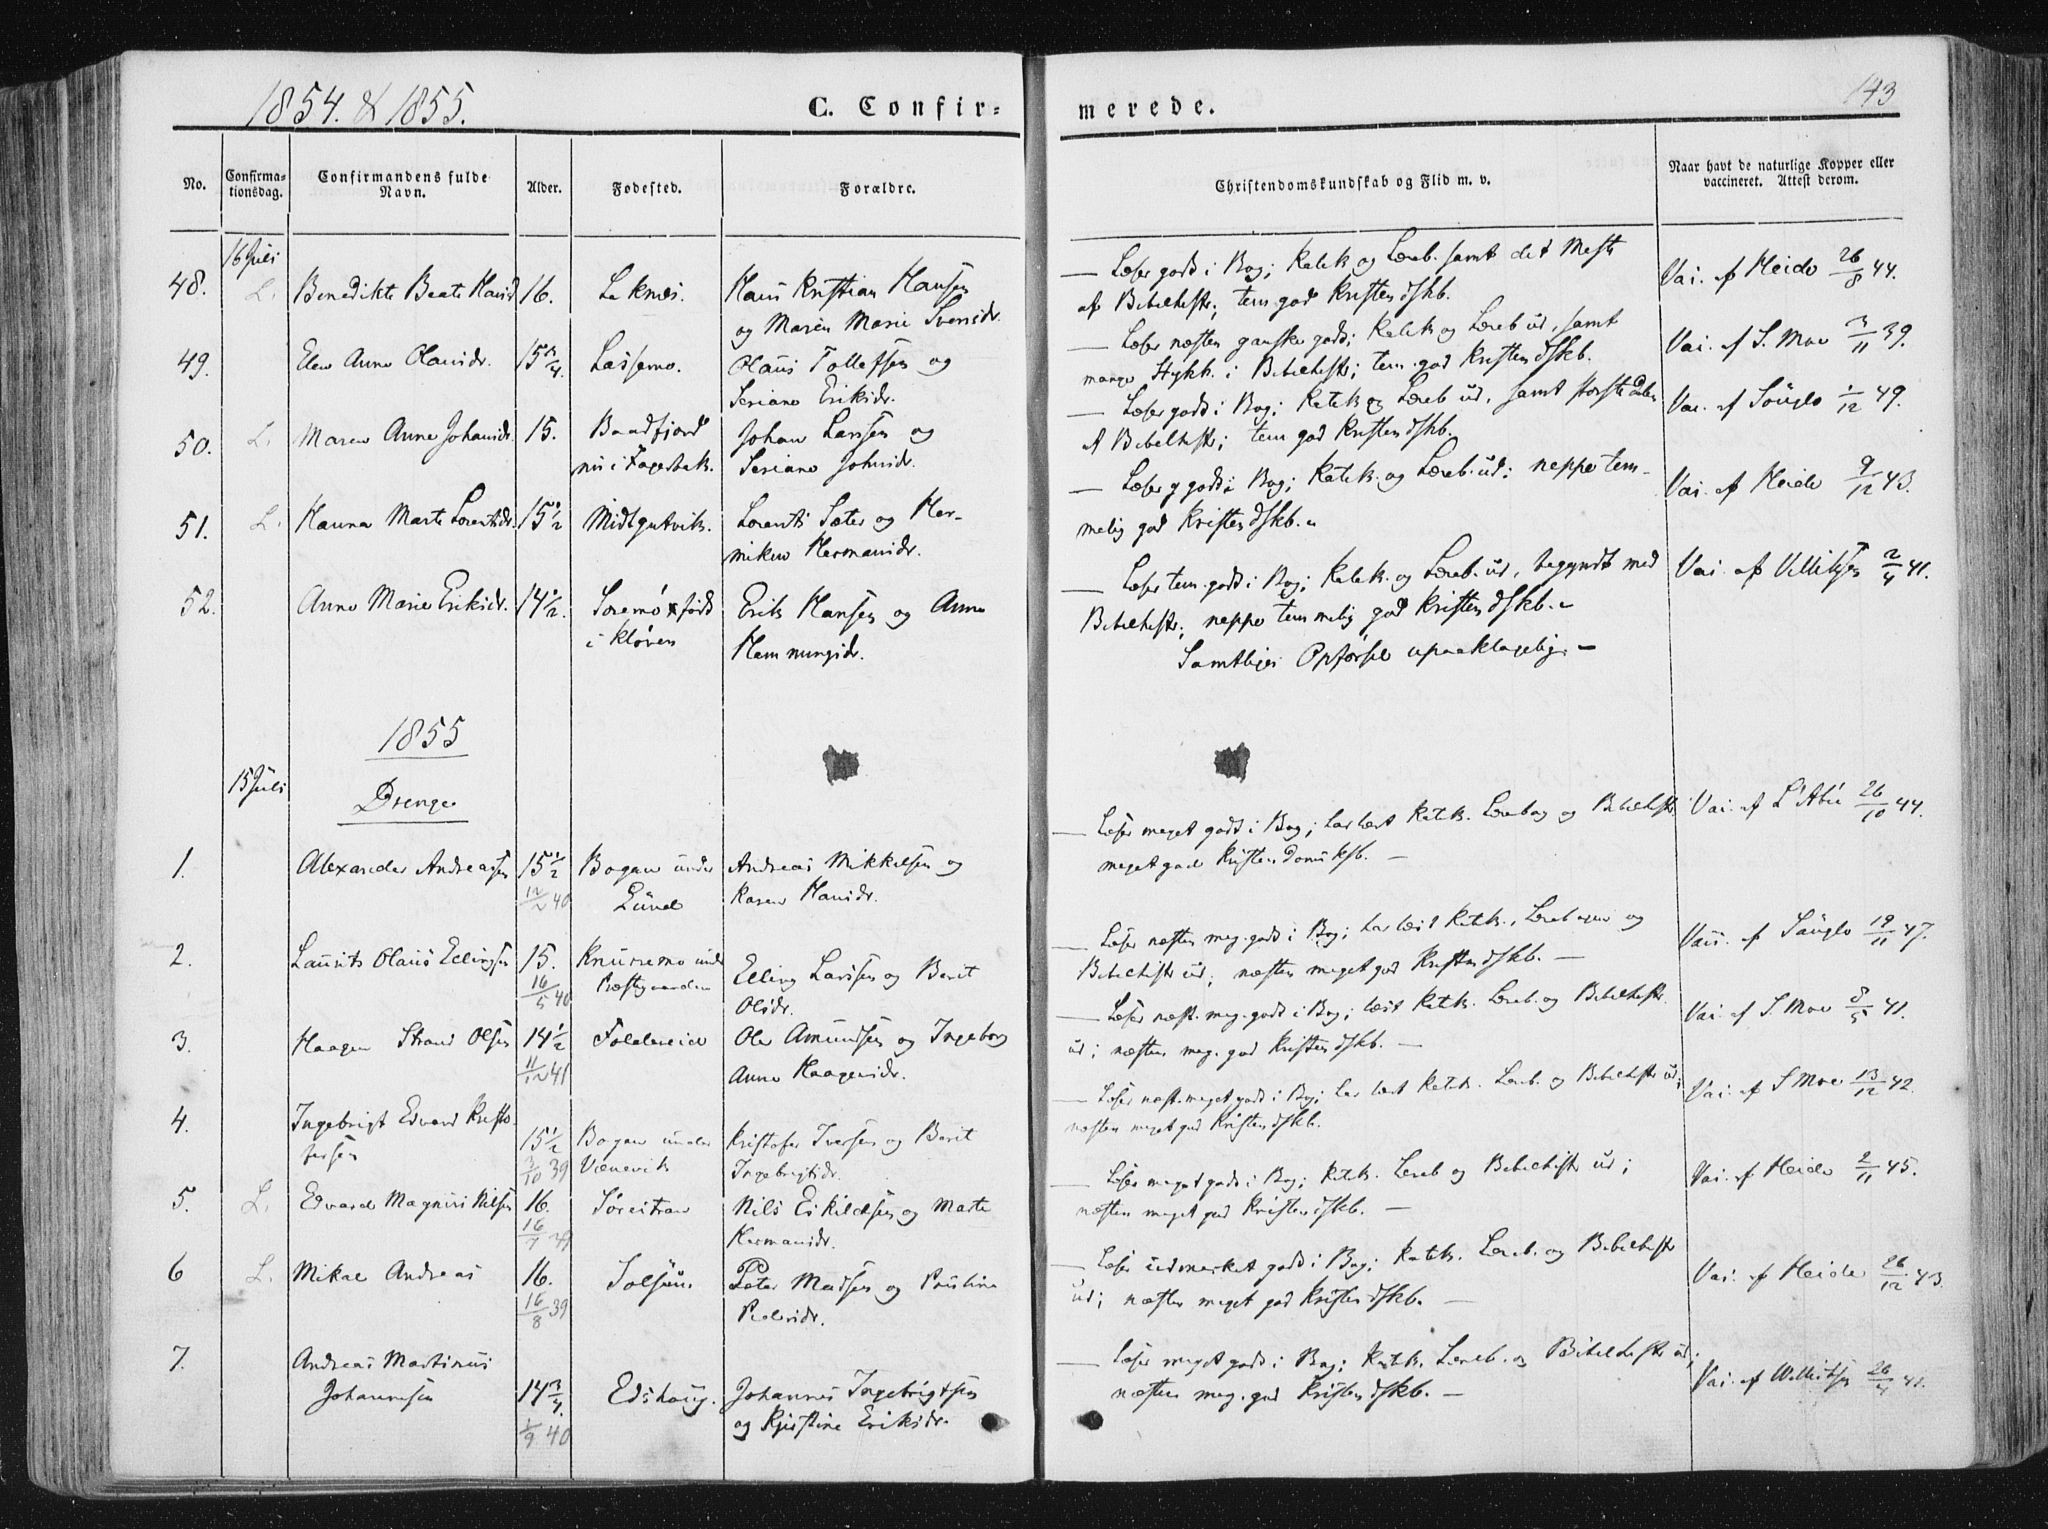 1854. & 1855.
C. Confir=
merede.
143
No.
Confirma-
tionsdag.
Confirmandens fulde
Navn.
Alder.
Fødested.
Forældre.
Christendomskundskab og Flid m. v.
Naar havt de naturlige Kopper eller
vaccineret. Attest derom.
16 Juli
48. L. Benedikte Beate Hansd 16. Leknes. Hans Kristian Hansen
og Maren Marie Svensdr.
— Læser godt i Bog; Katek og Læreb. samt det Meste
af Bibelhist; tem. god Kristendskb.
Vai. af Heide 26/8 44.
49. Elen Anne Olausdr. 15 3/4. Lassemo. Olaus Tollefsen og
Seriane Eriksdr.
— Læser næsten ganske godt; Katek og Læreb ud, samt
mange Stykk. i Bibelhist; tem. god Kristendskb.
Vai. af S. Moe 3/11 39.
50. L. Maren Anne Johansdr. 15. Baadfjord
nu i Fagerbak.
Johan Larsen og
Seriane Johnsdr.
— Læser godt i Bog; Katek og Læreb ud, samt største Delen
af Bibelhist; tem god Kristendskb.
Vac. af Sauglo 1/12 49.
51. L. Hanna Marte Lorentsdr. 15 1/2 Midtgutvik. Lorents Sæter og Her-
mikew Hermansdr.
— Læser godt i Bog; Katek. og Læreb. ud; neppe tem-
melig god Kristendskb.
Vai. af Heide 9/12 43.
52. Anne Marie Eriksdr. 14 1/2. Soremo født
i Kløven
Erik Hansen og Anne
Hemmingsdr.
— Læser tem. godt i Bog; Katek. og Læreb. ud, begyndt med
Bibelhist; neppe temmelig god Kristendskb.
Samtliges Opførsel upaaklagelig. —
Vai. af Villitsen 2/4 41.
1855
15 Juli
Drenge
1. Alexander Andreassen 15 1/2
12/2 40
Bogen under
Lund
Andreas Mikkelsen og
Karen Hansdr.
— Læser meget godt i Bog; har læst Katek. Lærebog og Bibelhist.
meget god Kristendomsksb. —
Vai. af L'Abée 26/10 44.
2. Laurits Olaus Ellingsen 15.
16/5 40
Knuremo under
Præstgaarden
Elling Larsen og Berit
Olsdr.
— Læser næsten meg. godt i Bog; har læst Katek., Lærebogen og
Bibelhist ud; næsten meget god Kristendskb. —
Vai. af Sauglo 19/11 47.
3. Haagen Strand Olsen 14 1/2
11/12 41
Foldereid Ole Amundsen og Ingeborg
Anne Haagensdr.
— Læser næst. meg. godt i Bog; læst Katek. Læreb. og Bibelhist.
ud; næsten meg. god Kristendskb. —
Vai. af S Moe 8/5 41.
4. Ingebrigt Edvard Kristo
fersen
15 1/2
3/10 39
Bogen under
Værevik
Kristofer Iversen og Berit
Ingebrigtsdr.
— Læser næst. meget godt i Bog; har læst Katek. Læreb. og Bibelhist ud;
næsten meget god Kristendskb.
Vai. af S Moe 13/12 42.
5. L. Edvard Magnus Nilsen 16.
16/7 39
Søreistran Nils Eskildsen og Marte
Hermansdr.
— Læser meget godt i Bog; Katek. Læreb og Bibelhist ud;
næsten meget god Kristendskb. —
Vai. af Heide 2/11 45.
6 L. Mikal Andreas 16.
16/8 39
Solsem. Peter Madsen og Pauline
Pedersdr.
— Læser udmerket godt i Bog; Katek. Læreb. og Bibelhist
ud; næsten meget god Kristendskb. —
Vai. af Heide 26/12 43.
7. Andreas Martinus
Johannesen
14 3/4.
1/9 40
Edshaug. Johannes Ingebrigtsen
og Kjistine Eriksdr.
— Læser meget godt i Bog; Katek. Læreb. og Bibelhist ud;
næsten meg. god Kristendskb. —
Vai. af Willitsen 26/4 41.